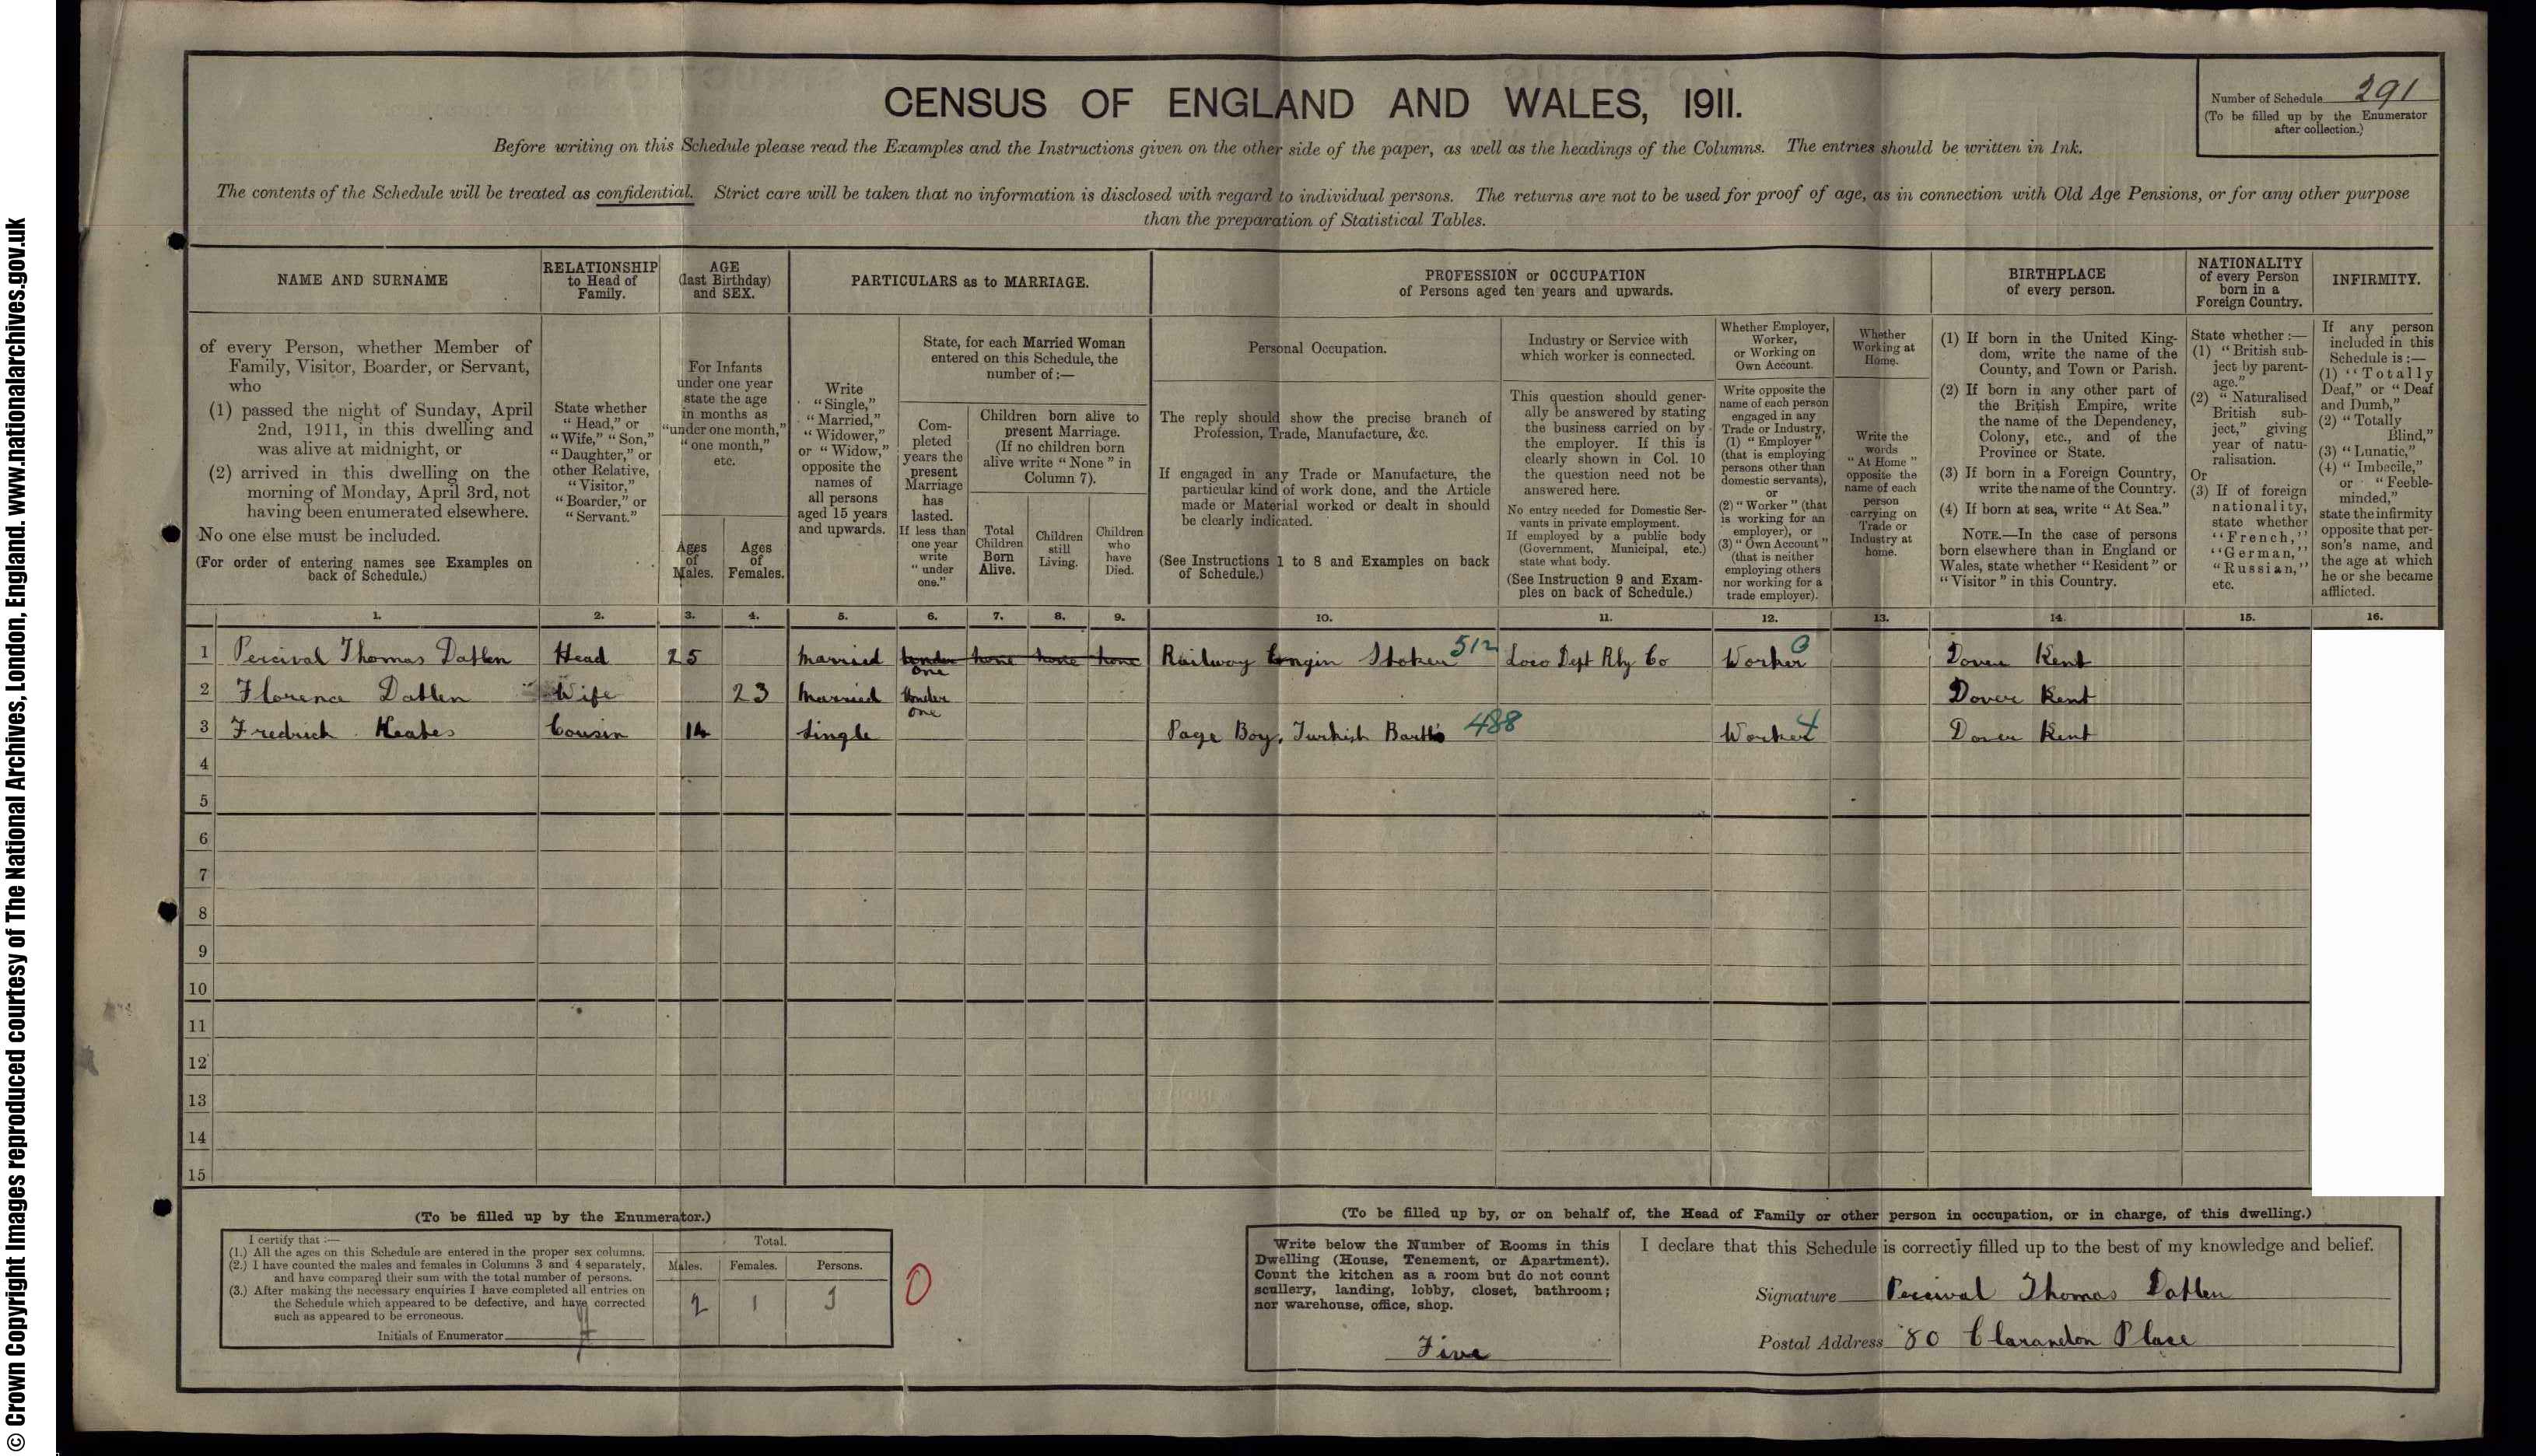 © Crown Copyright Images reproduced courtesy of The National Archives, London, England. www.nationalarchives.gov.uk
CENSUS OF ENGLAND AND WALES, 1911.
Number of Schedule 291
(To be filled up by the Enumerator
after collection.)
Before writing on this Schedule please read the Examples and the Instructions given on the other side of the paper, as well as the headings of the Columns. The entries should be written in Ink.
The contents of the Schedule will be treated as confidential. Strict care will be taken that no information is disclosed with regard to individual persons. The returns are not to be used for proof of age, as in connection with Old Age Pensions, or for any other purpose
than the preparation of Statistical Tables.
NAME AND SURNAME
of every Person, whether Member of
Family, Visitor, Boarder, or Servant,
who
(1) passed the night of Sunday, April
2nd, 1911, in this dwelling and
was alive at midnight, or
(2) arrived in this dwelling on the
morning of Monday, April 3rd, not
having been enumerated elsewhere.
No one else must be included.
(For order of entering names see Examples on
back of Schedule.)
RELATIONSHIP
to Head of
Family.
State whether
"Head," or
"Wife," "Son,"
"Daughter," or
other Relative,
"Visitor,"
"Boarder," or
"Servant."
AGE
(last Birthday)
and SEX.
For Infants
under one year
state the age
in months as
"under one month,"
"one month,"
etc.
Ages
of
Males.
Ages
of
Females.
PARTICULARS as to MARRIAGE.
Write
"Single,"
"Married,"
"Widower,"
or "Widow,"
opposite the
names of
all persons
aged 15 years
and upwards.
State, for each Married Woman
entered on this Schedule, the
number of :—
Com-
pleted
years the
present
Marriage
has
lasted.
If less than
one year
write
"under
one."
Children born alive to
present Marriage.
(If no children born
alive write "None" in
Column 7).
Total
Children
Born
Alive.
Children
still
Living.
Children
who
have
Died.
PROFESSION or OCCUPATION
of Persons aged ten years and upwards.
Personal Occupation.
The reply should show the precise branch of
Profession, Trade, Manufacture, &c.
If engaged in any Trade or Manufacture, the
particular kind of work done, and the Article
made or Material worked or dealt in should
be clearly indicated.
(See Instructions 1 to 8 and Examples on back
of Schedule.)
Industry or Service with
which worker is connected.
This question should gener-
ally be answered by stating
the business carried on by
the employer. If this is
clearly shown in Col. 10
the question need not be
answered here.
No entry needed for Domestic Ser-
vants in private employment.
If employed by a public body
(Government, Municipal, etc.)
state what body.
(See Instruction 9 and Exam-
ples on back of Schedule.)
Whether Employer,
Worker,
or Working on
Own Account.
Write opposite the
name of each person
engaged in any
Trade or Industry,
(1) "Employer"
(that is employing
persons other than
domestic servants),
or
(2) "Worker" (that
is working for an
employer), or
(3) "Own Account"
(that is neither
employing others
nor working for a
trade employer).
Whether
Working at
Home.
Write the
words
"At Home"
opposite the
name of each
person
carrying on
Trade or
Industry at
home.
BIRTHPLACE
of every person.
(1) If born in the United King-
dom, write the name of the
County, and Town or Parish.
(2) If born in any other part of
the British Empire, write
the name of the Dependency,
Colony, etc., and of the
Province or State.
(3) If born in a Foreign Country,
write the name of the Country.
(4) If born at sea, write "At Sea."
NOTE.—In the case of persons
born elsewhere than in England or
Wales, state whether "Resident" or
"Visitor" in this Country.
NATIONALITY
of every Person
born in a
Foreign Country.
State whether :—
(1) "British sub-
ject by parent-
age."
(2) "Naturalised
British sub-
ject," giving
year of natu-
ralisation.
Or
(3) If of foreign
nationality,
state whether
"French,"
"German,"
"Russian,"
etc.
INFIRMITY.
If any person
included in this
Schedule is :—
(1) "Totally
Deaf," or "Deaf
and Dumb,"
(2) "Totally
Blind,"
(3) "Lunatic,"
(4) "Imbecile,"
or "Feeble-
minded,"
state the infirmity
opposite that per-
son's name, and
the age at which
he or she became
afflicted.
1. 2. 3. 4. 5. 6. 7. 8. 9. 10. 11. 12. 13. 14. 15. 16.
1 Percival Thomas Datlen Head 25 Married under one none none none Railway Engin Stoker 512 Loco Dept Rly Co Worker 0 Dover Kent
2 Florence Datlen Wife 23 Married Under one Dover Kent
3 Fredrick Keates Cousin 14 Single Page Boy, Turkish Baths 488 Worker 4 Dover Kent
4
5
6
7
8
9
10
11
12
13
14
15
(To be filled up by the Enumerator.)
I certify that :—
(1.) All the ages on this Schedule are entered in the proper sex columns.
(2.) I have counted the males and females in Columns 3 and 4 separately,
and have compared their sum with the total number of persons.
(3.) After making the necessary enquiries I have completed all entries on
the Schedule which appeared to be defective, and have corrected
such as appeared to be erroneous.
Initials of Enumerator
Total.
Males. Females. Persons.
2 1 3
0
(To be filled up by, or on behalf of, the Head of Family or other person in occupation, or in charge, of this dwelling.)
Write below the Number of Rooms in this
Dwelling (House, Tenement, or Apartment).
Count the kitchen as a room but do not count
scullery, landing, lobby, closet, bathroom;
nor warehouse, office, shop.
Five
I declare that this Schedule is correctly filled up to the best of my knowledge and belief.
Signature Percival Thomas Datlen
Postal Address 80 Clarandon Place